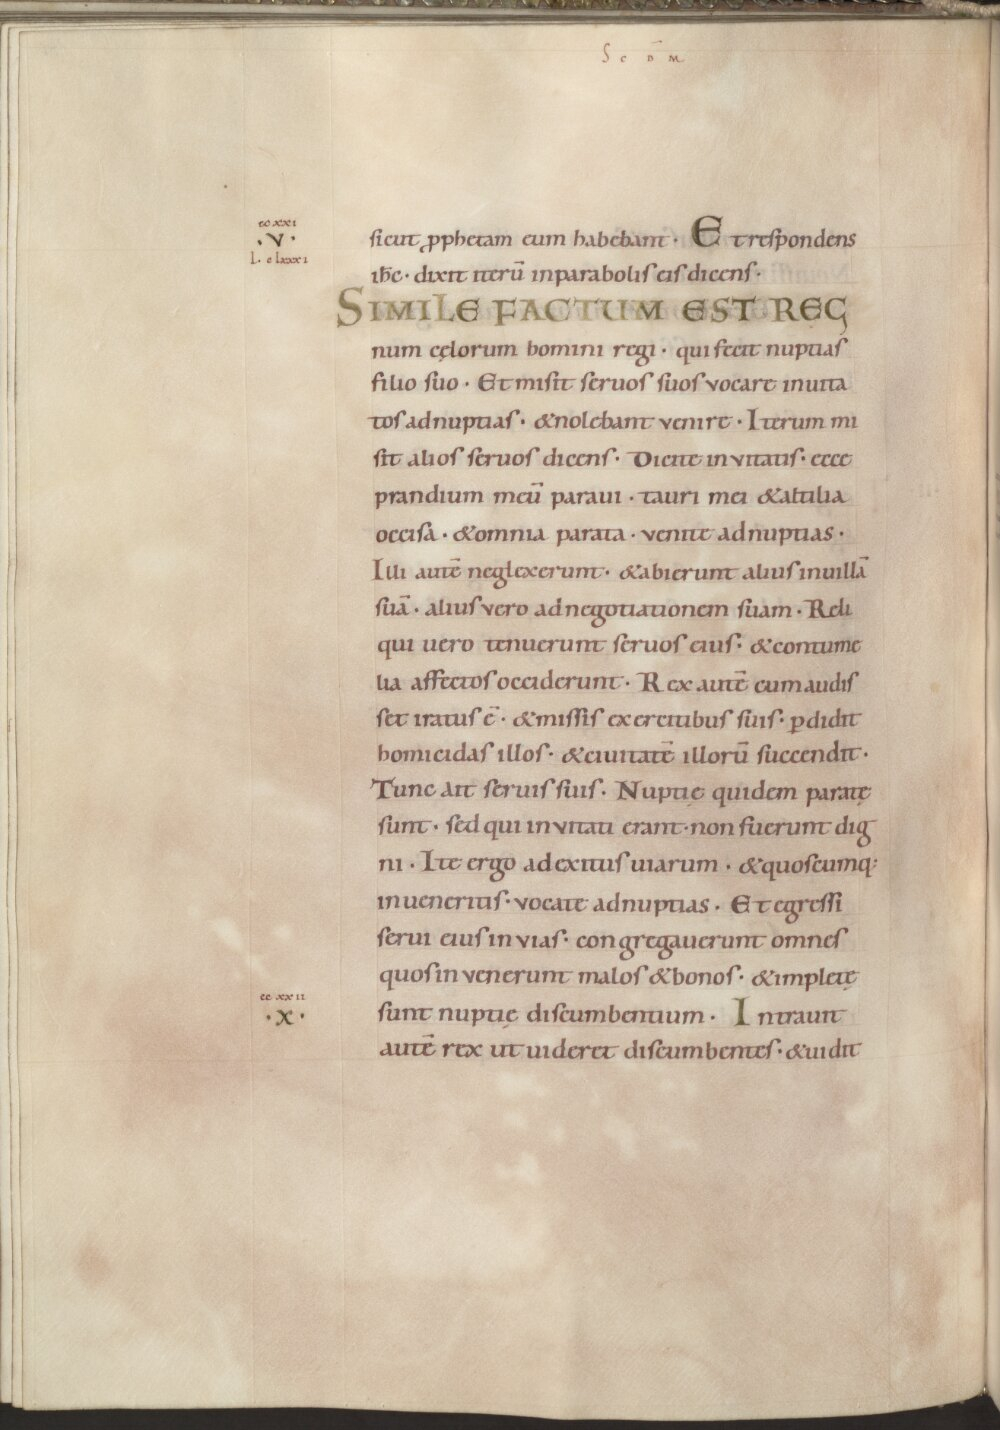 Scd̄m
ccxxi
·v·
l· clxxxi
sicut ꝓphetam eum habebant· Et respondens
ih̄c· dixit iterū in parabolis eis dicens·
SIMILE FACTUM EST REG
num cęlorum homini regi· qui fecit nuptias
filio suo· Et misit seruos suos vocare inuita
tos ad nuptias· & nolebant venire· Iterum mi
sit alios seruos dicens· Dicite invitatis· ecce
prandium meū paraui· tauri mei & altilia
occisa· & omnia parata· venite ad nuptias·
Illi autē neglexerunt· & abierunt alius in uillā
suā· alius vero ad negotiationem suam· Reli
qui uero tenuerunt seruos eius· & contume
lia affectos occiderunt· Rex autē cum audis
set iratus ē· & missis exercitibus suis· ꝑdidit
homicidas illos· & ciuitatē illorū succendit·
Tunc ait seruis suis· Nuptię quidem paratę
sunt· sed qui invitati erant· non fuerunt dig
ni· Ite ergo ad exitus uiarum· & quoscumq;
inueneritis· vocate ad nuptias· Et egressi
serui eius in vias· congregauerunt omnes
quos invenerunt malos & bonos· & impletę
ccxxii
·x·
sunt nuptię discumbentium· Intrauit
autē rex ut uideret discumbentes· & uidit